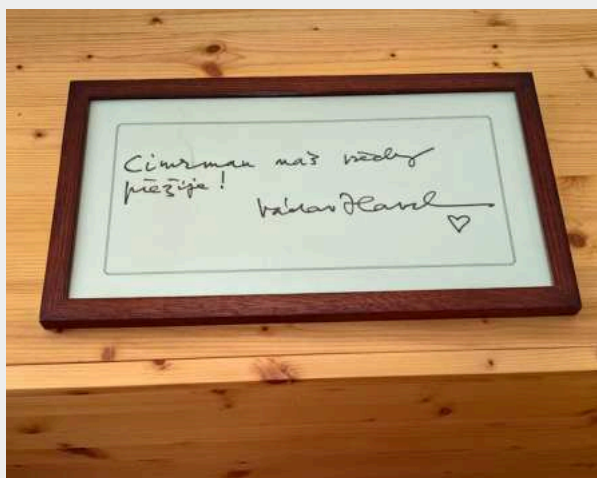 Cimrman náš vědy
přežije!
Václav Havel